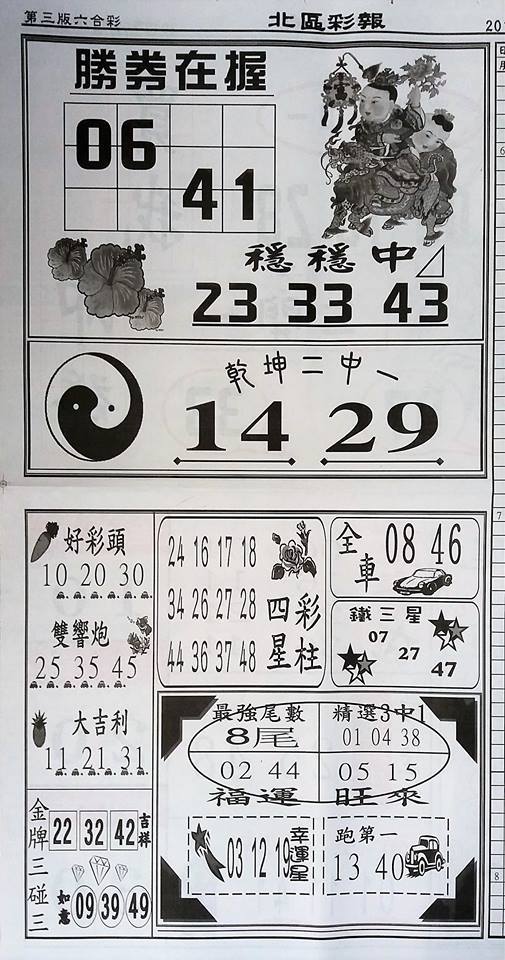 第三版六合彩 北區彩報 20
勝券在握
06
41
穩穩中
23 33 43
乾坤二中一
14 29
好彩頭
10 20 30
雙響炮
25 35 45
大吉利
11 21 31
金牌三碰三
22 32 42 吉祥
如意 09 39 49
24 16 17 18
34 26 27 28
44 36 37 48
四星彩柱
全車 08 46
鐵三星
07
27
47
最強尾數 精選3中1
8尾 01 04 38
02 44 05 15
福運 旺來
03 12 19 幸運星
跑第一
13 40
6
7
8